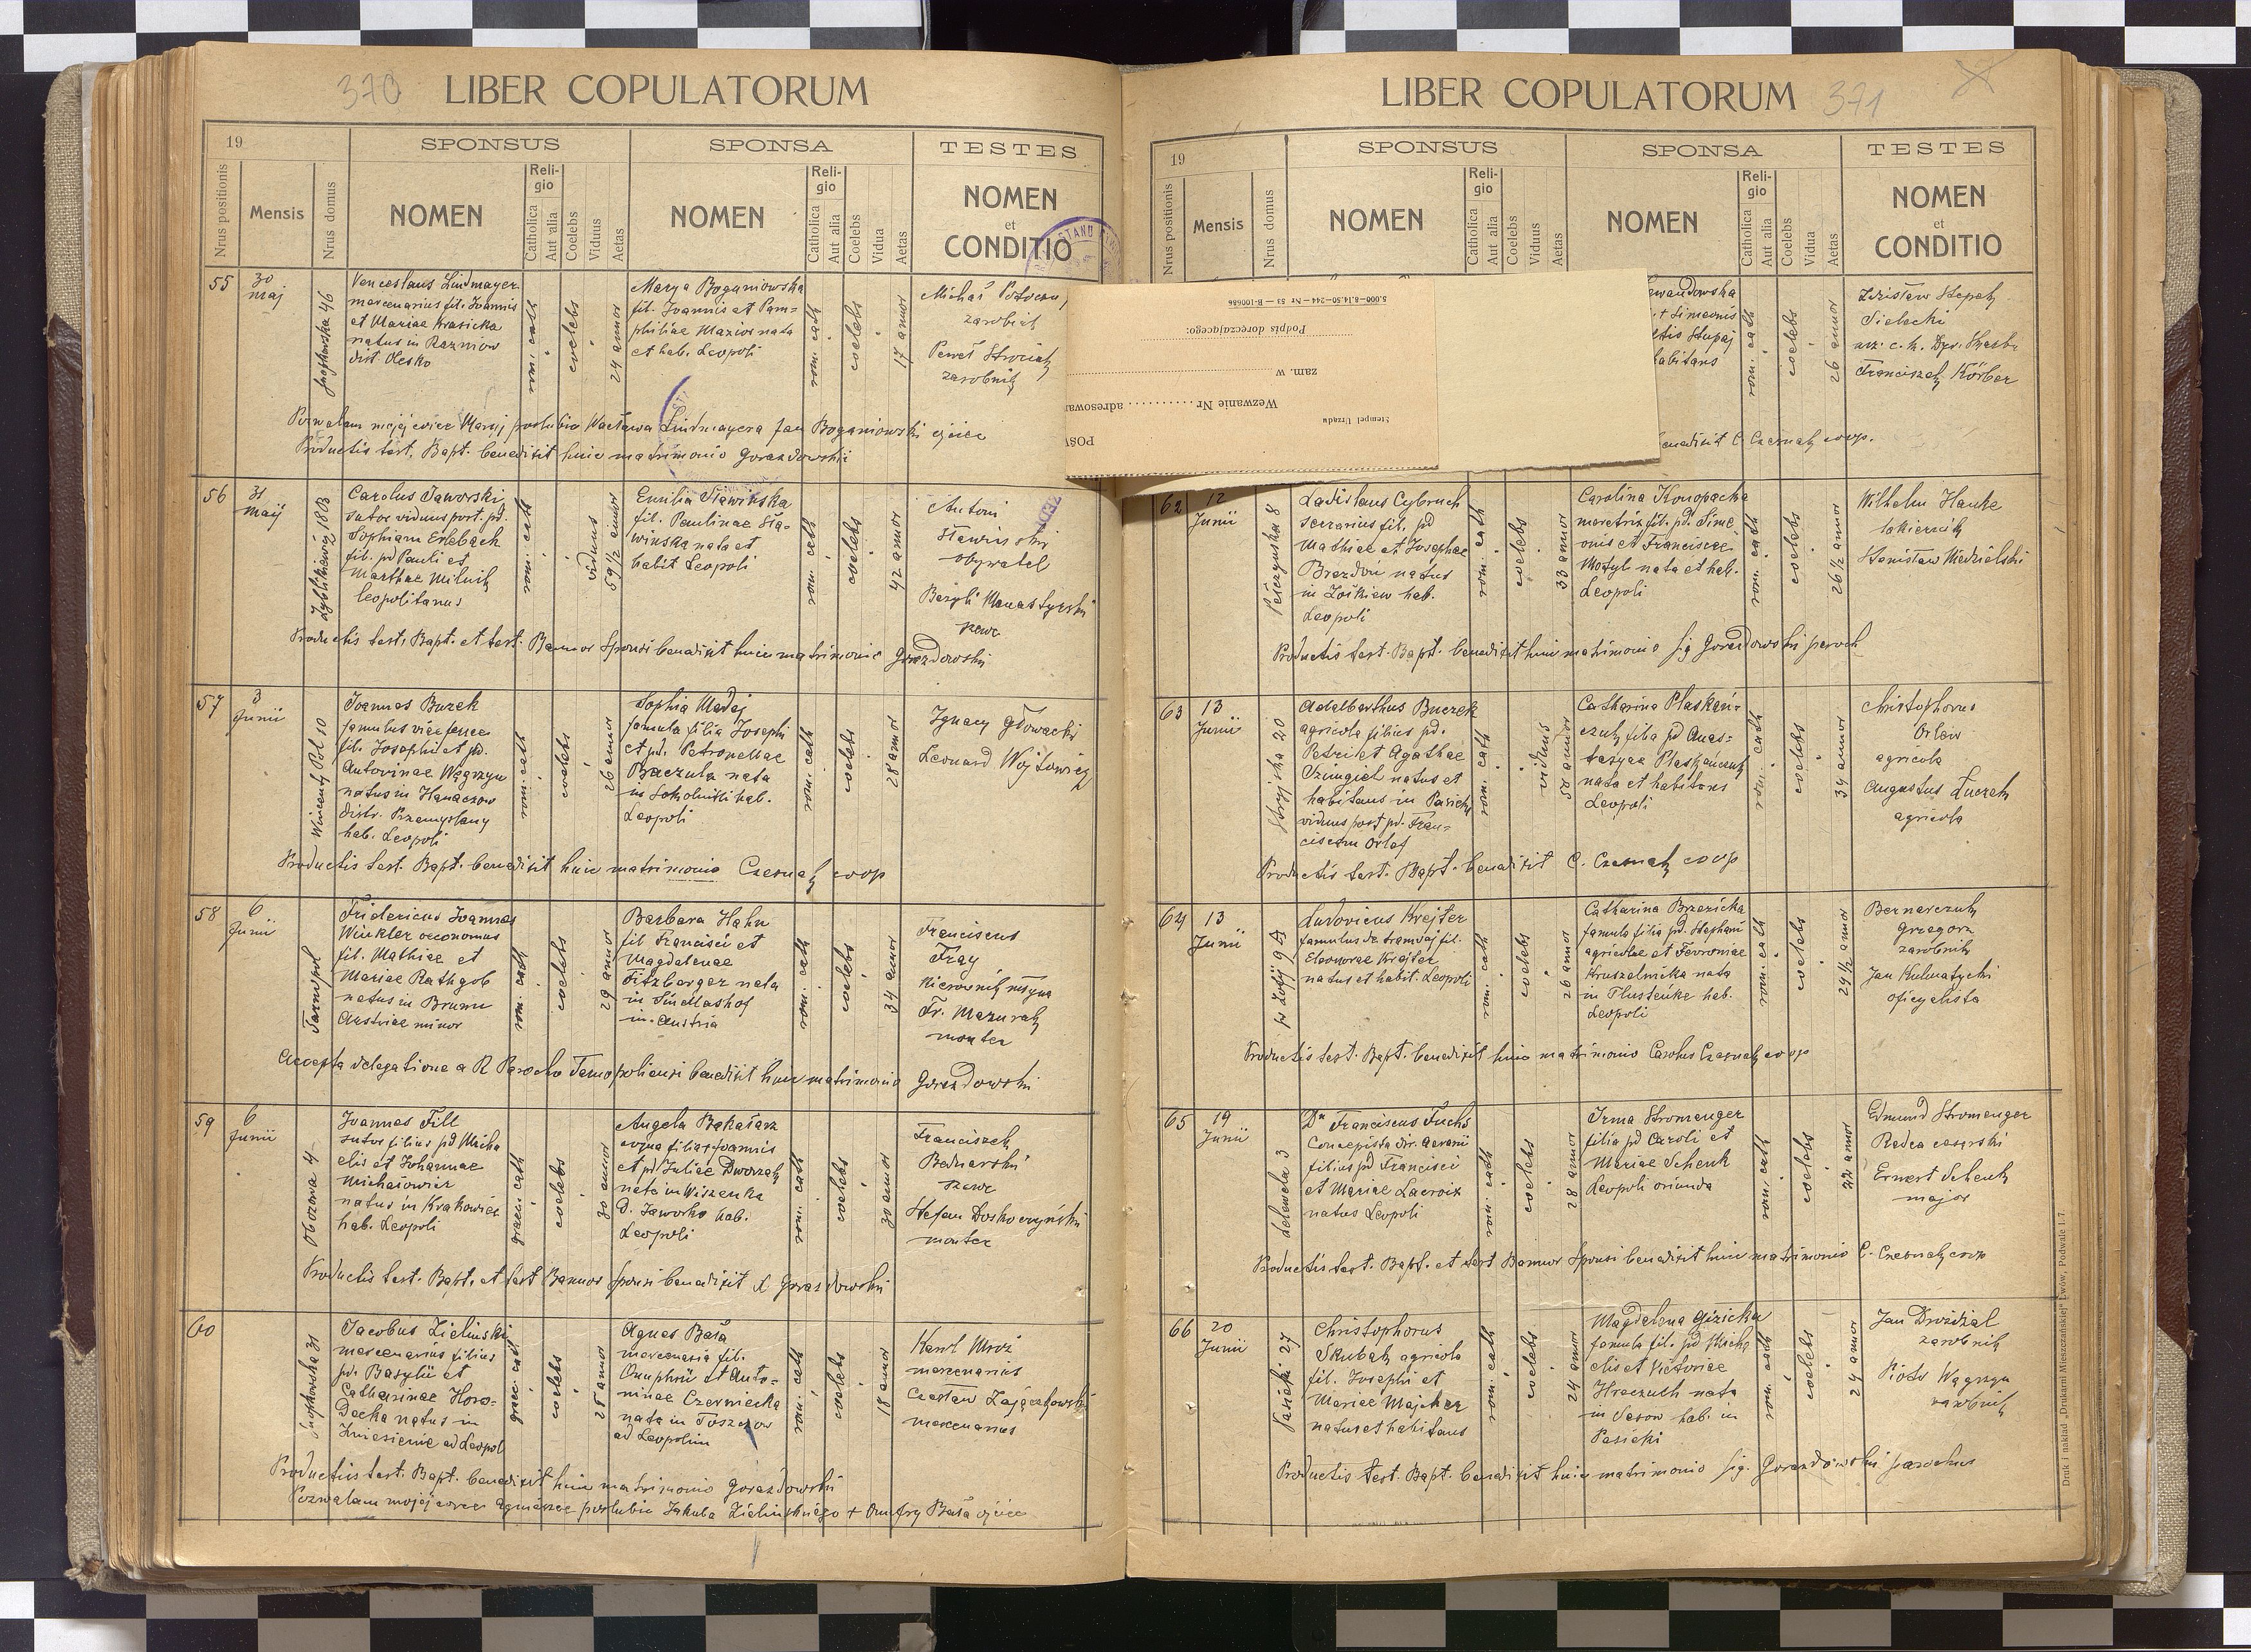 370
LIBER COPULATORUM
19
SPONSUS
SPONSA
TESTES
Nrus positionis
Mensis
Nrus domus
NOMEN
Religio
Catholica
Aut alia
Coelebs
Viduus
Aetas
NOMEN
Religio
Catholica
Aut alia
Coelebs
Vidua
Aetas
NOMEN
et
CONDITIO
55
30
maj
46
Venceslaus Lindmayer
mercenarius fil. Joannis
et Mariae Krasicka
natus in
dist. Olesko
rom. cath
coelebs
24 annor
Marya Boganiowska
fil. Joannis et Pam-
philiae Mazior nata
et hab. Leopoli
rom. cath
coelebs
17 annor
zarobnik
Pozwalam mojej córce Maryi poślubić Wacława Lindmayera Jan Boganiowski ojciec
Productis test. Bapt. benedixit huic matrimonio Gorazdowski
56
31
Maij
Carolus Jaworski
sutor viduus post. pd.
Sophiam Erlebach
fil. pd Pauli et
Marthae Milnik
leopolitanus
rom. cath
viduus
59 1/2 annor
Emilia Sławińska
fil. Paulinae Sła-
wińska nata et
habit Leopoli
rom. cath
coelebs
42 annor
Antoni
Sławiński
obywatel
Bazyli Manastyrski
szewc
Productis test. Bapt. et test. Bannor Sponsi benedixit huic matrimonio Gorazdowski
57
3
Junii
Wincenty Pol 10
Joannes Burek
famulus viae ferreae
fil. Josephi et pd.
Antoninae Węgrzyn
natus in Hanaczow
distr. Przemyslany
hab. Leopoli
rom. cath
coelebs
26 annor
Sophia Madej
famula filia Josephi
et pd. Petronellae
Baczula nata
in Sokolniki hab.
Leopoli
rom. cath
coelebs
28 annor
Ignacy Głowacki
Leonard Wójtowicz
Productis test. Bapt. benedixit huic matrimonio Czesnak coop
58
6
Junii
Tarnopol
Fridericus Joannes
Winkler oeconomus
fil. Mathiae et
Mariae Rathgob
natus in Brunn
Austriae minor
rom. cath
coelebs
29 annor
Barbara Hahn
fil Francisci et
Magdalenae
Fitzberger nata
in Sindlashof
in Austria
rom. cath
coelebs
34 annor
Franciscus
Fray
kierownik młyna
Fr. Mazurak
monter
Accepta delegatione a R Parocho Tarnopoliensi benedixit huic matrimonio Gorazdowski
59
6
Junii
Obozowa 4
Joannes Till
sutor filius pd Micha
elis et Johannae
Michałowicz
natus in Krakowiec
hab. Leopoli
graeci cath
coelebs
30 annor
Angela Bakałarz
coqua filia Joannis
et pd Juliae Dworzak
nata in Wiszenka
d. Jaworko hab.
Leopoli
rom. cath
coelebs
30 annor
Franciszek
Bednarski
szewc
Stefan Doskoczyński
monter
Productis test. Bapt. et test Bannor sponsi benedixit X Gorazdowski
60
Jacobus Zielinski
mercenarius filius
pd. Basylii et
Catharinae Horo-
decka natus in
Zniesienie ad Leopol
graec. cath
coelebs
25 annor
Agnes Basa
mercenaria fil.
Onuphrii et Anto-
ninae Czerniecka
nata in Toszczow
ad Leopolim
rom. cath
coelebs
18 annor
Karol Mroz
mercenarius
Czesław Zajączkowski
mercenarius
Productis test. Bapt. benedixit huic matrimonio Gorazdowski
Pozwalam mojej córce Agnieszce poślubić Jakuba Zielińskiego + Onufry Basa ojciec
LIBER COPULATORUM
371
19
SPONSUS
SPONSA
TESTES
Nrus positionis
Mensis
Nrus domus
NOMEN
Religio
Catholica
Aut alia
Coelebs
Viduus
Aetas
NOMEN
Religio
Catholica
Aut alia
Coelebs
Vidua
Aetas
NOMEN
et
CONDITIO
5.000—8.14.50—244—Nr — 53 — B-100686
Podpis doręczającego:
zam. w
Wezwanie Nr
adresowan
Stempel Urzędu
rom. cath
coelebs
26 annor
Zdzisław Stepek
Sielecki
urz. c. k. Dyr. Skarbu
Franciszek Körber
benedixit C. Czesnak coop.
62
12
Junii
Pełczyńska 8
Ladislaus Cybruch
serrarius fil. pd
Mathiae et Josephae
Brazdoń natus
in Żółkiew hab.
Leopoli
rom. cath
coelebs
33 annor
Carolina Konopacka
meretrix fil. pd. Sime
onis et Franciscae
Motyl nata et hab.
Leopoli
rom. cath
coelebs
26 1/2 annor
Wilhelm Hanke
lakiernik
Stanisław Niedzielski
Productis test. Bapt. benedixit huic matrimonio Sig Gorazdowski paroch
63
13
Junii
Stryjska 20
Adalbertus Buczek
agricola filius pd.
Petri et Agathae
Dzingiel natus et
habitans in Pasieki
viduus post pd. Fran-
ciscam Orlof
rom. cath
viduus
50 annor
Catharina Płaskań-
czuk filia pd Anas-
tasyae Płaskańczuk
nata et habitans
Leopoli
rom. cath
coelebs
34 annor
Christophorus
Orlew
agricola
Augustus Łuczek
agricola
Productis test. Bapt. benedixit C. Czesnak coop
64
13
Junii
Ludovicus Krejter
famulus de tramwaj fil.
Eleonorae Krejter
natus et habit. Leopoli
rom. cath
coelebs
26 annor
Catharina Brzezicka
famula filia pd. Stephani
agricolae et Fevroniae
Kruszelnicka nata
in Tłusteńke hab.
Leopoli
rom. cath
coelebs
24 1/2 annor
Bernarczuk
Grzegorz
zarobnik
Jan Kulmatycki
oficyalista
Productis test. Bapt. benedixit huic matrimonio Carolus Czesnak coop
65
19
Junii
3
Dr Franciscus Fuchs
Concepista dir. aerarii
filius pd Francisci
et Mariae Lacroix
natus Leopoli
rom. cath
coelebs
28 annor
Irma Stromenger
filia pd Caroli et
Mariae Schenk
Leopoli oriunda
rom. cath
coelebs
22 annor
Edmund Stromenger
Radca cesarski
Ernest Schenk
major
Productis test. Bapt. et test Bannor Sponsi benedixit huic matrimonio C. Czesnak coop
66
20
Junii
Pasieki 27
Christophorus
Skubak agricola
fil. Josephi et
Mariae Majcher
natus et habitans
rom. cath
coelebs
24 annor
Magdalena Gizicka
famula fil. pd Micha
elis et Victoriae
Hraczuch nata
in Sasow hab. in
Pasieki
rom. cath
coelebs
24 annor
Jan Droździal
zarobnik
Piotr Węgrzyn
zarobnik
Productis test. Bapt. benedixit huic matrimonio Sig. Gorazdowski parochus
Druk i nakład „Drukarni Mieszczańskiej“ Lwów, Podwale l. 7.